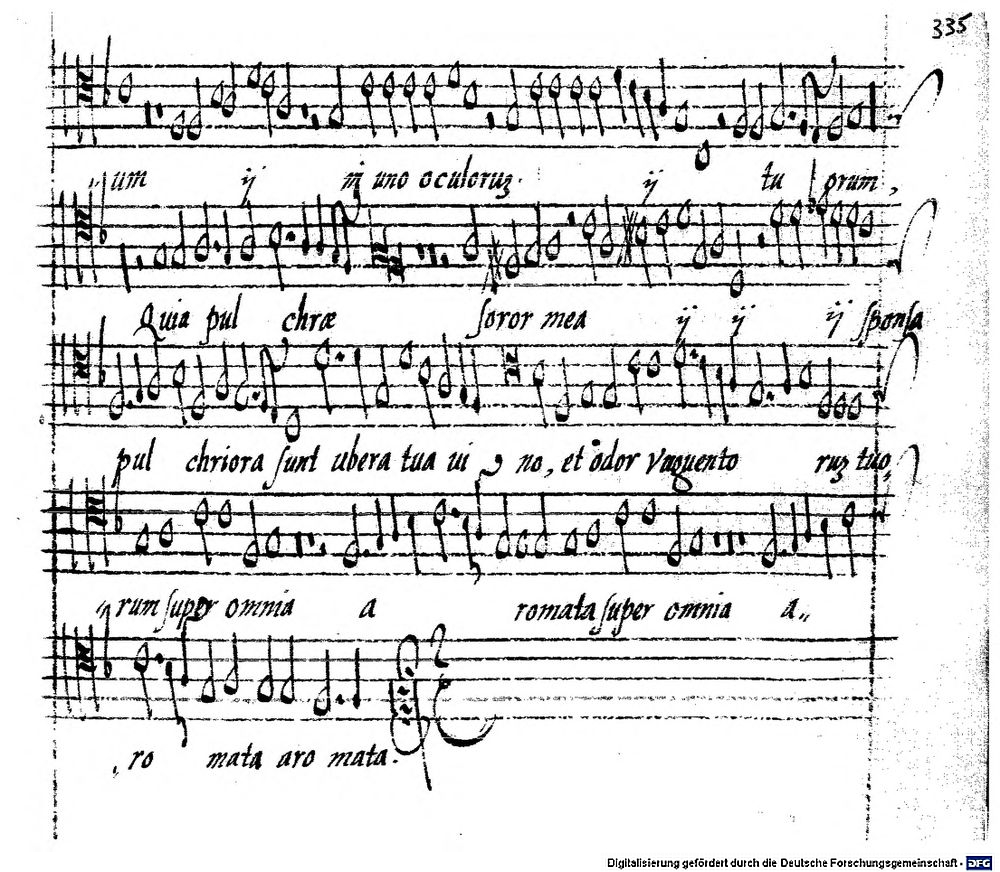 335
um ij in uno oculoruꝫ. ij tu orum,
Quia pul chræ soror mea ij ij ij sponsa
pul chriora sunt ubera tua ui no, et odor vnguento ruꝫ tuo,
rum super omnia a romata super omnia a,,
ro mata aro mata.
Digitalisierung gefördert durch die Deutsche Forschungsgemeinschaft - DFG